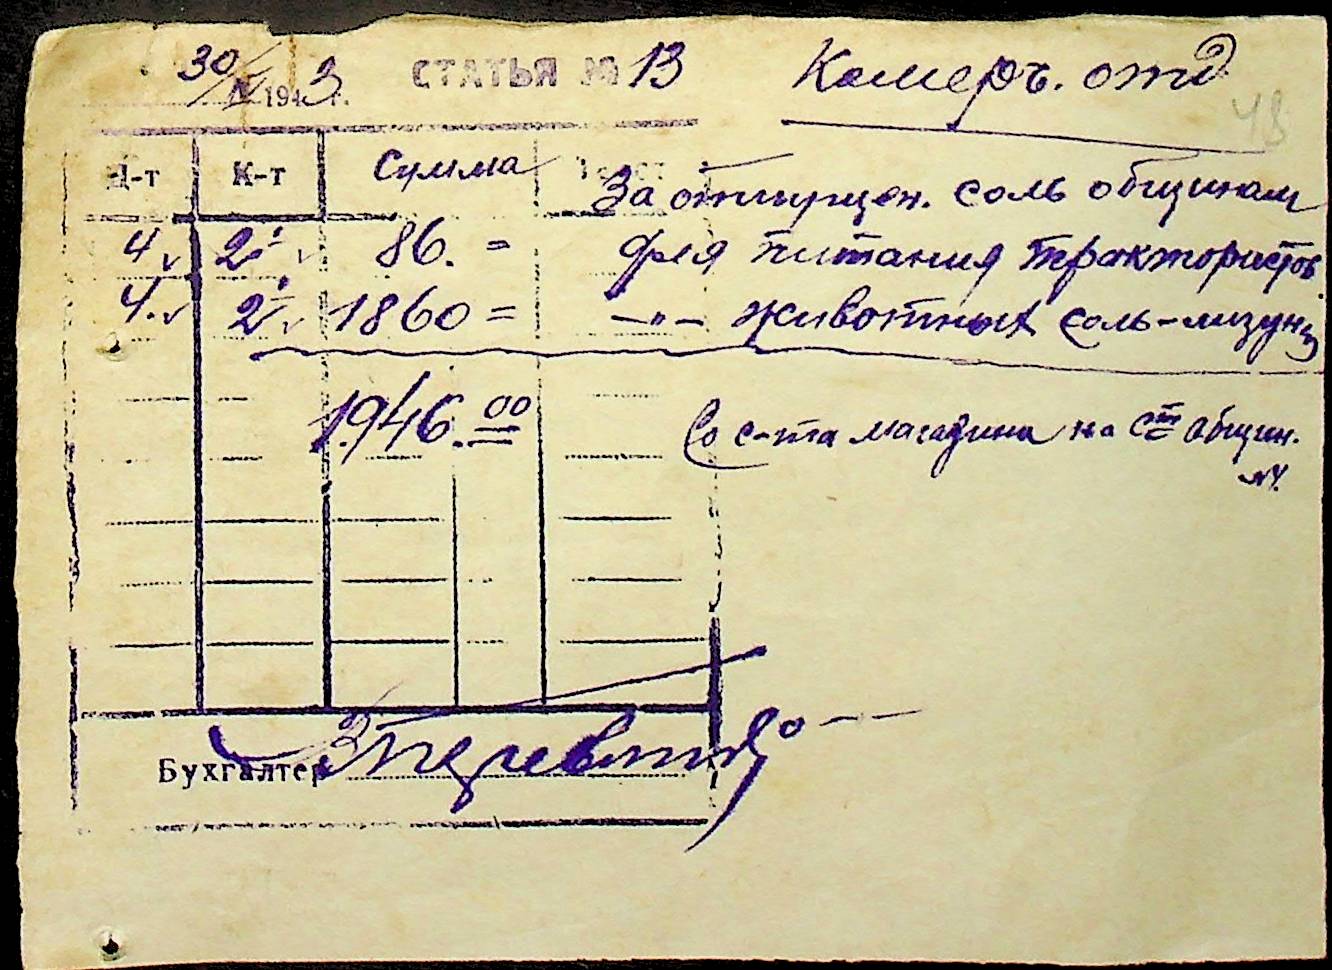 30/IV 1943 г. СТАТЬЯ № 13 Комеръ. отд
48
Д-т К-т Сумма Текст
За отпущен. соль общинам
4 2 86. = для питания трактористов
4. 2 1860 = —"— животных соль-лизунец
1.946.00
Со с-та магазина на с/т общин.
№4.
Бухгалтер